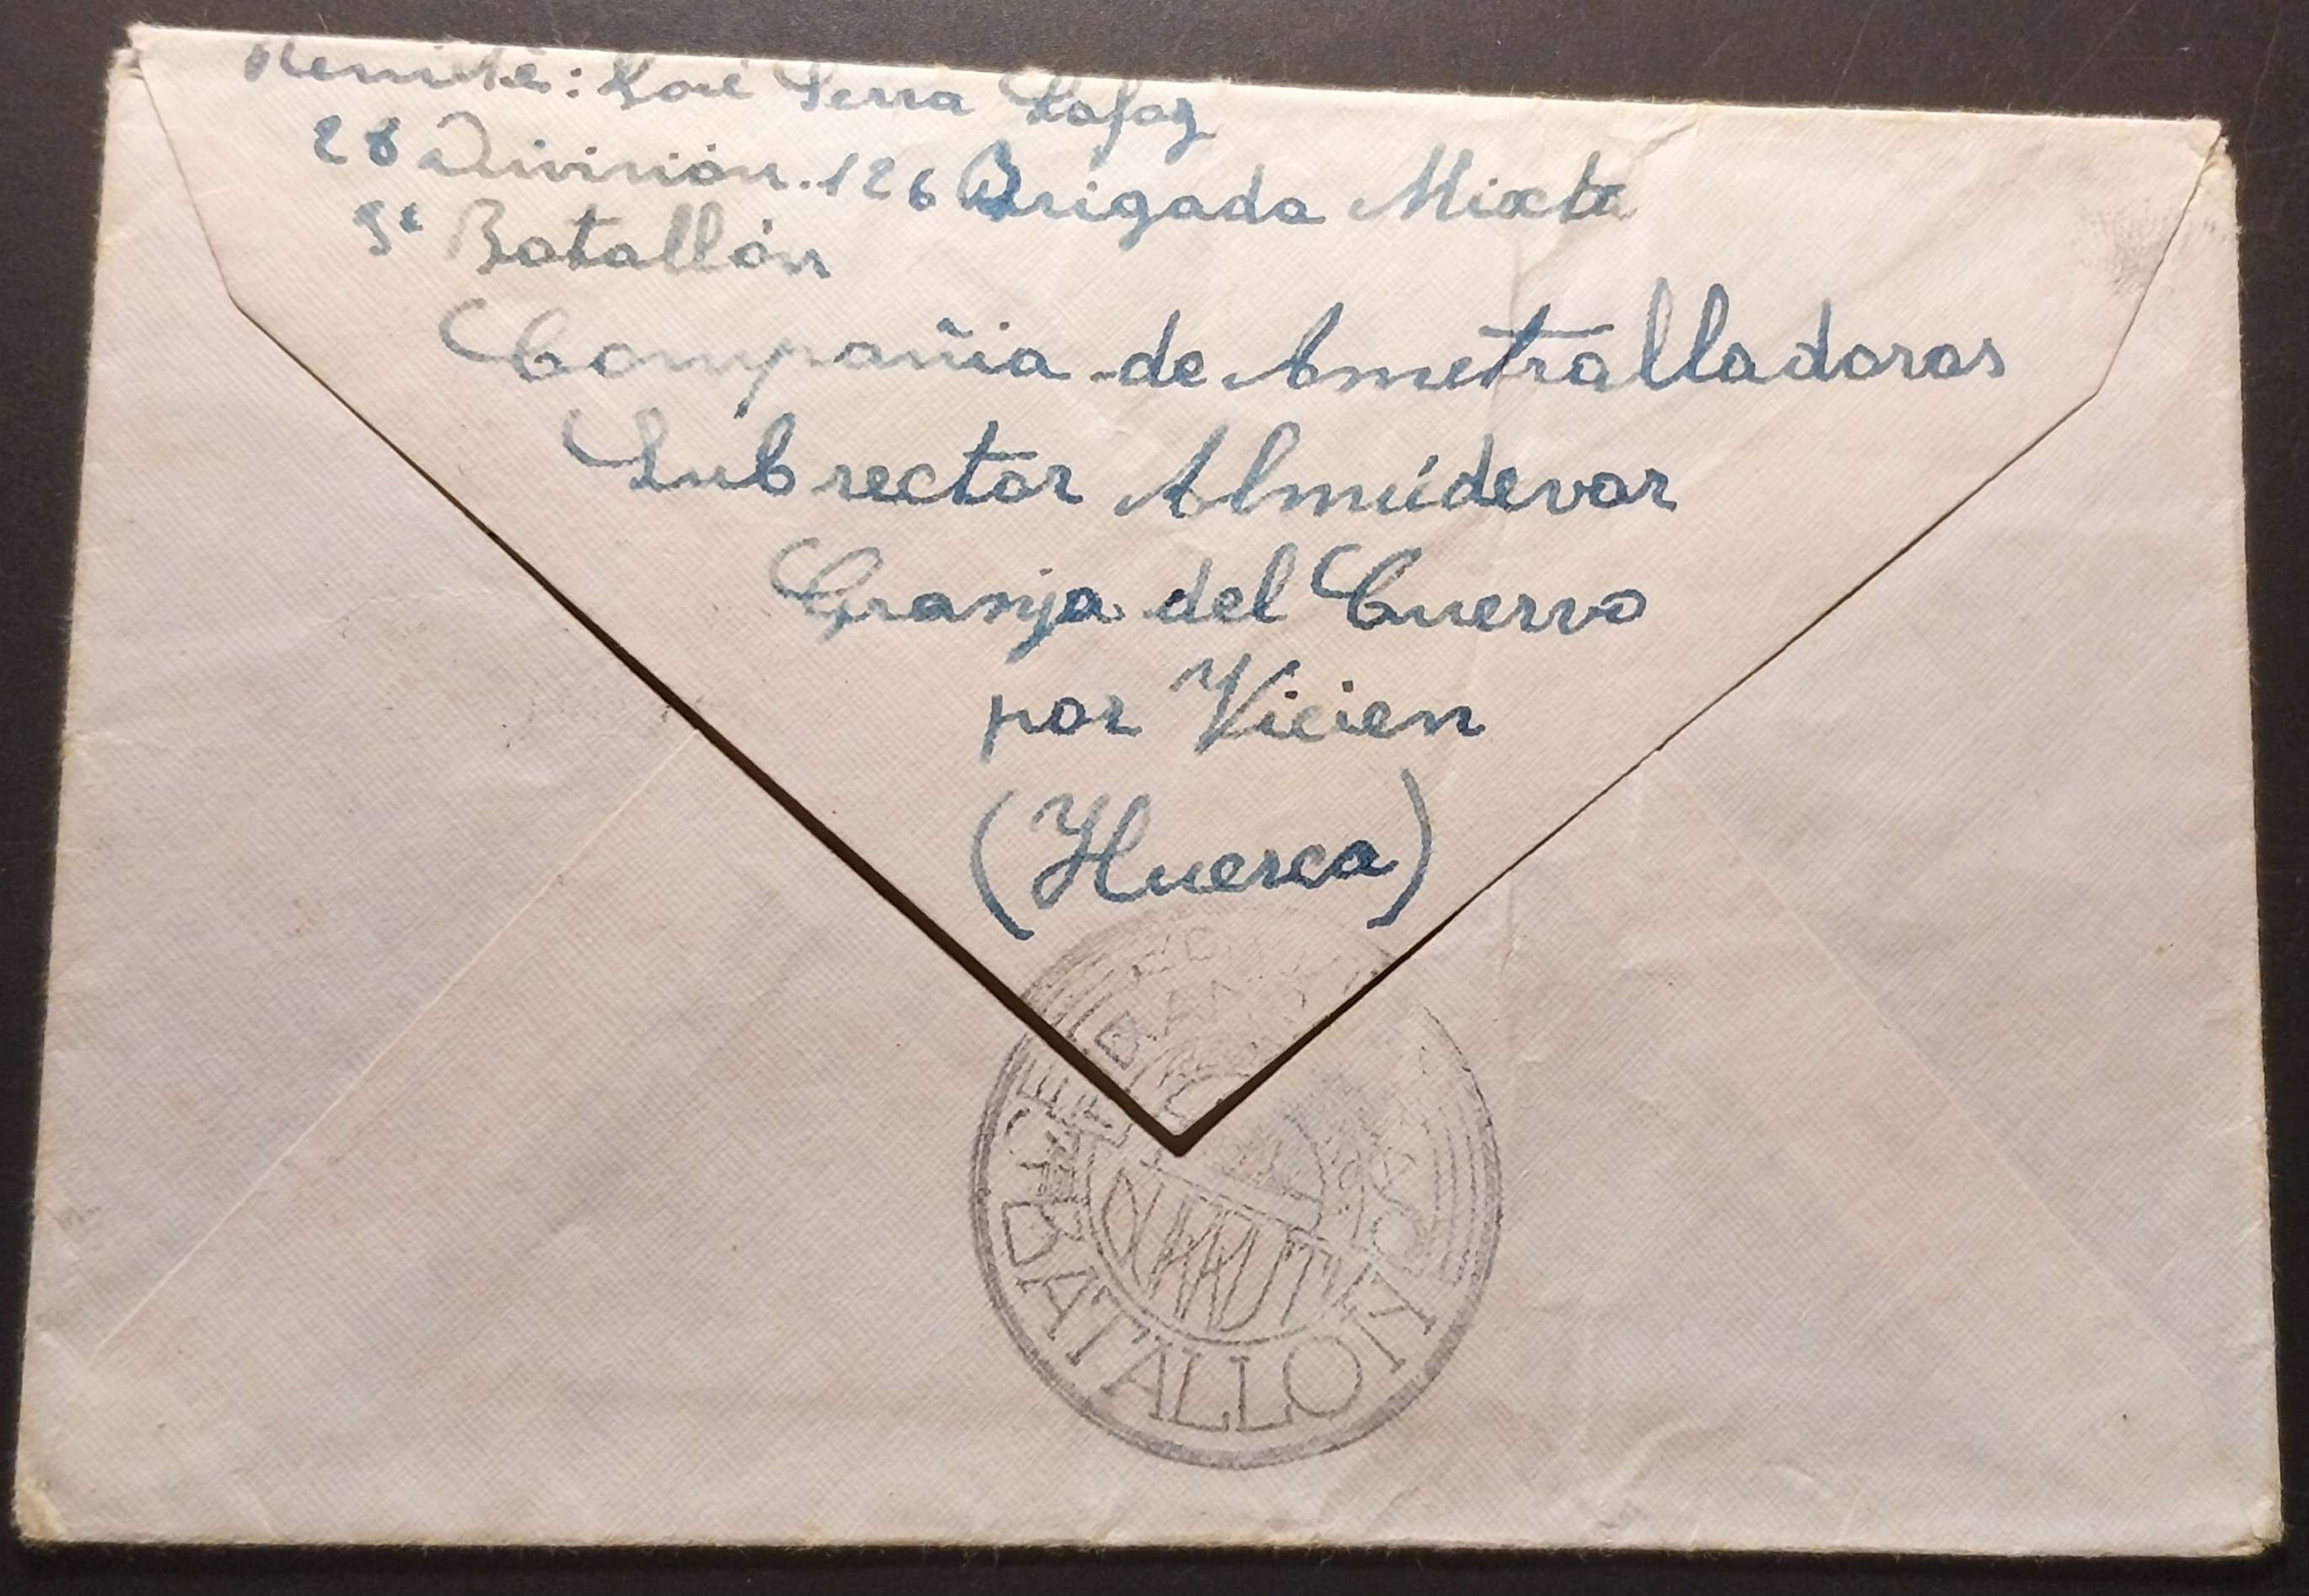 Remite: José Serra Lafoz
28 División. 126 Brigada Mixta
3º Batallón
Compañia de Ametralladoras
Subsector Almúdevar
Granja del Cuervo
por Vicien
(Huesca)
DURRUTI
BATALLON